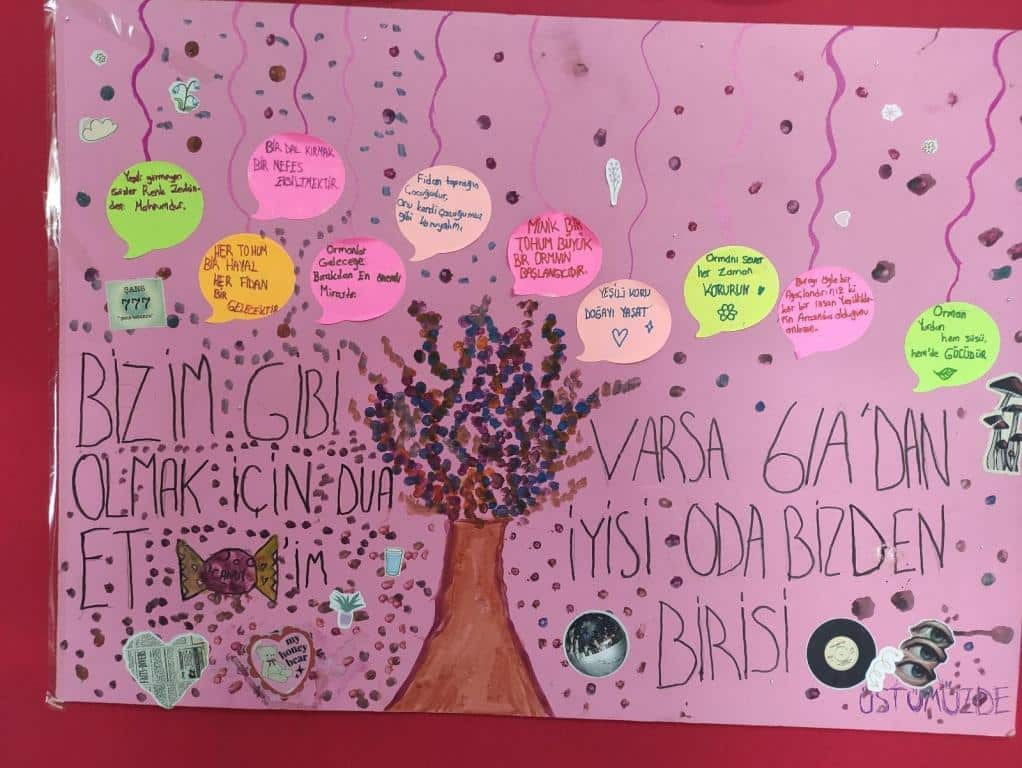 Yeşili görmeyen
Gözler Renk Zevkin-
den Mahrumdur.
BİR DAL KIRMAK
BİR NEFES
EKSİLTMEKTİR
HER TOHUM
BİR HAYAL
HER FİDAN
BİR
GELECEKTİR
Ormanlar
Geleceğe
Bırakılan En önemli
Mirastır.
Fidan toprağın
Çocuğudur,
Onu kendi çocuğumuz
gibi koruyalım.
MİNİK BİR
TOHUM BÜYÜK
BİR ORMAN
BAŞLANGICIDIR.
YEŞİLİ KORU
DOĞAYI YAŞAT
Ormanı Sever
her Zaman
KORURUM
Burayı öyle bir
Ağaçlandırınız ki
kör bir insan Yeşillikle-
rin Arasında olduğunu
anlasın.
Orman
Yurdun
hem süsü,
hem'de GÜCÜDÜR
SANS
777
BİZİM GİBİ
OLMAK İÇİN DUA
ET CANDY 'İM
VARSA 6/A'DAN
İYİSİ ODA BİZDEN
BİRİSİ
my
honey
bear
FAITS-DIVERS
ÜSTÜMÜZDE